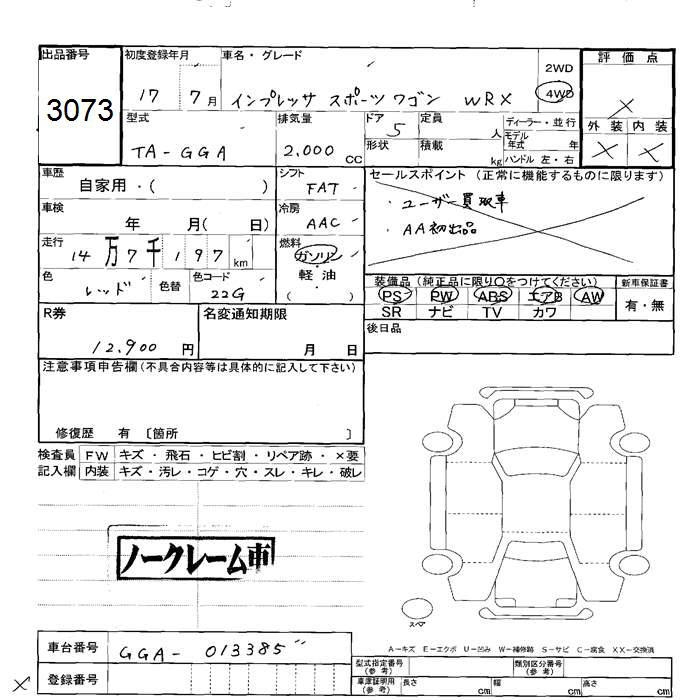 出品番号 初度登録年月 車名・グレード 2WD 評価点
3073 17 7月 インプレッサ スポーツワゴン WRX 4WD ×
型式 排気量 ドア 定員 ディーラー・並行 外装 内装
TA-GGA 2,000CC 5 人 モデル年式 年 × ×
形状 積載 kg ハンドル 左・右
車歴 シフト セールスポイント (正常に機能するものに限ります)
自家用・( ) FAT ・ユーザー買取車
車検 冷房 ・AA初出品
年 月( 日) AAC
走行 燃料
14万7千197km ガソリン
色 色替 色コード 軽油 装備品(純正品に限り○をつけてください) 新車保証書
レッド 22G ( ) PS PW ABS エアB AW 有・無
R券 名変通知期限 SR ナビ TV カワ
12,900円 月 日 後日品
注意事項申告欄(不具合内容等は具体的に記入して下さい)
修復歴 有 〔箇所 〕
検査員 FW キズ・飛石・ヒビ割・リペア跡・×要
記入欄 内装 キズ・汚レ・コゲ・穴・スレ・キレ・破レ
ノークレーム車
スペア
A-キズ E-エクボ U-凹み W-補修跡 S-サビ C-腐食 XX-交換済
車台番号 GGA-013385 型式指定番号(参考) 類別区分番号(参考)
× 登録番号 車庫証明用(参考) 長さ cm 幅 cm 高さ cm